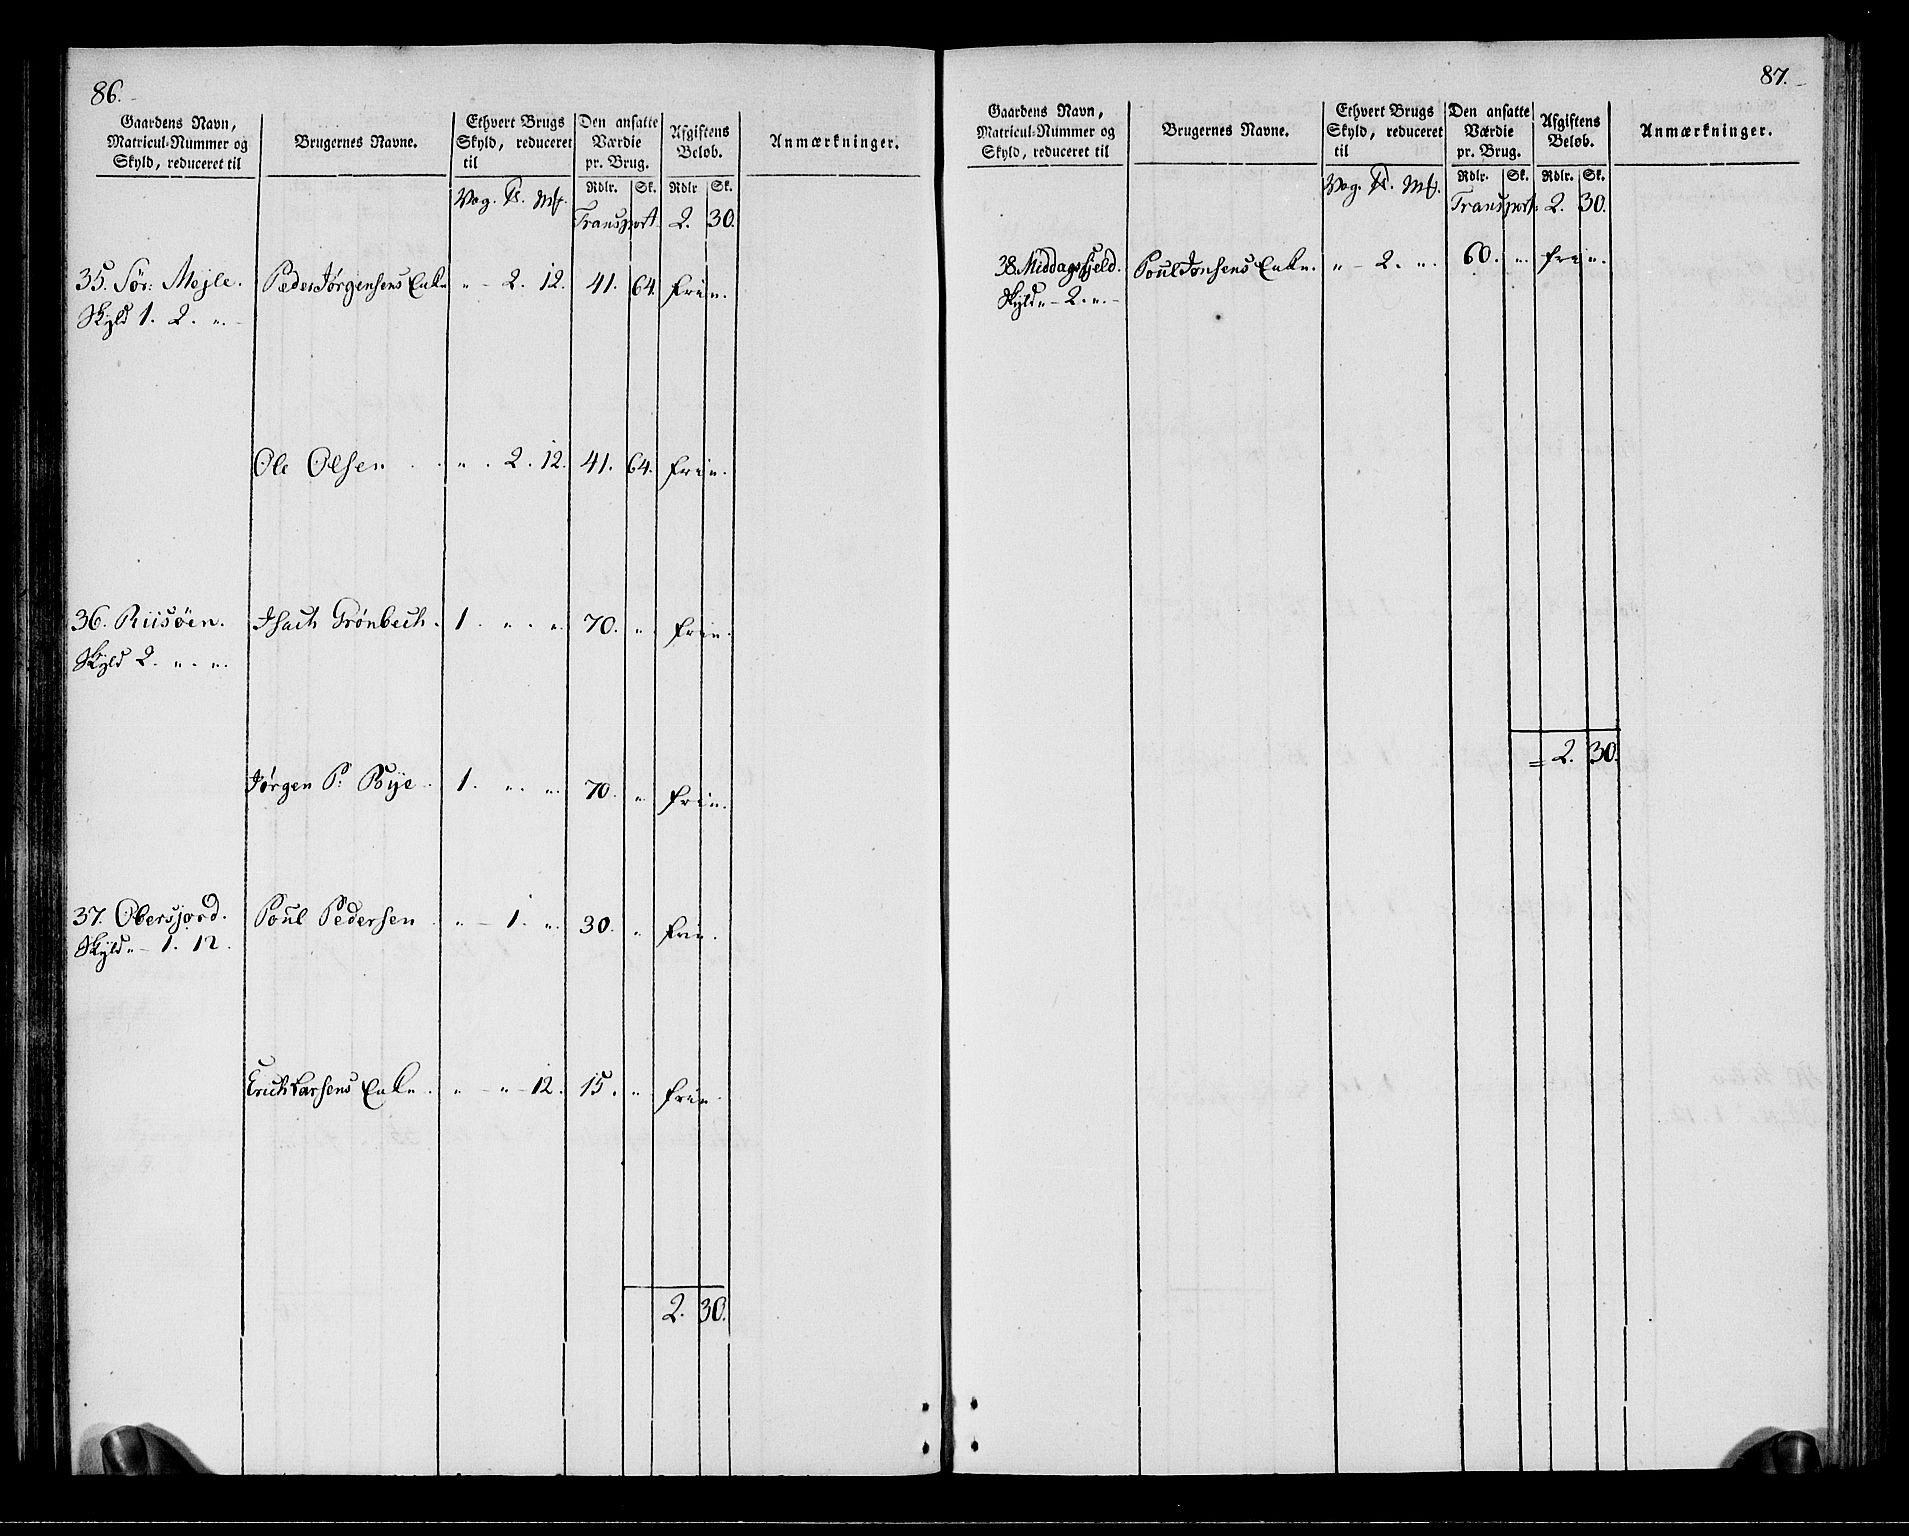 86.
Gaardens Navn, Matricul-Nummer og Skyld, reduceret til
Brugernes Navne.
Ethvert Brugs Skyld, reduceret til
Den ansatte Værdie pr. Brug.
Afgiftens Beløb.
Anmærkninger.
Rdlr. Sk. Rdlr Sk.
Vog. ℔. Mk.
Transport. 2. 30.
35. Sør: Mejle. Peder Jørgensens Enke „ - 2. 12. 41. 64. frie.
Skyld 1. 2. „. -
Ole Olsen . . „ . 2. 12. 41. 64. frie.
36. Riisøen. Isach Grønbech. 1. „ . „. 70. „. frie.
Skyld 2. „. „.
Jørgen P: Bye . 1. „. „. 70. „ frie.
37. Obersjord. Poul Pedersen . „ - 1. „. 30. „ frie.
Skyld „ - 1. 12.
Erich Larsens Enke . „ - „ - 12. 15. „ frie.
2. 30.
87.
Gaardens Navn, Matricul-Nummer og Skyld, reduceret til
Brugernes Navne.
Ethvert Brugs Skyld, reduceret til
Den ansatte Værdie pr. Brug.
Afgiftens Beløb.
Anmærkninger.
Rdlr. Sk. Rdlr. Sk.
Vog. ℔. Mk.
Transport: 2. 30.
38. Middagsfjeld. Poul Jonsens Enke. „ - 2. „. 60. „. frie.
Skyld „ - 2. „. -
= 2. 30.